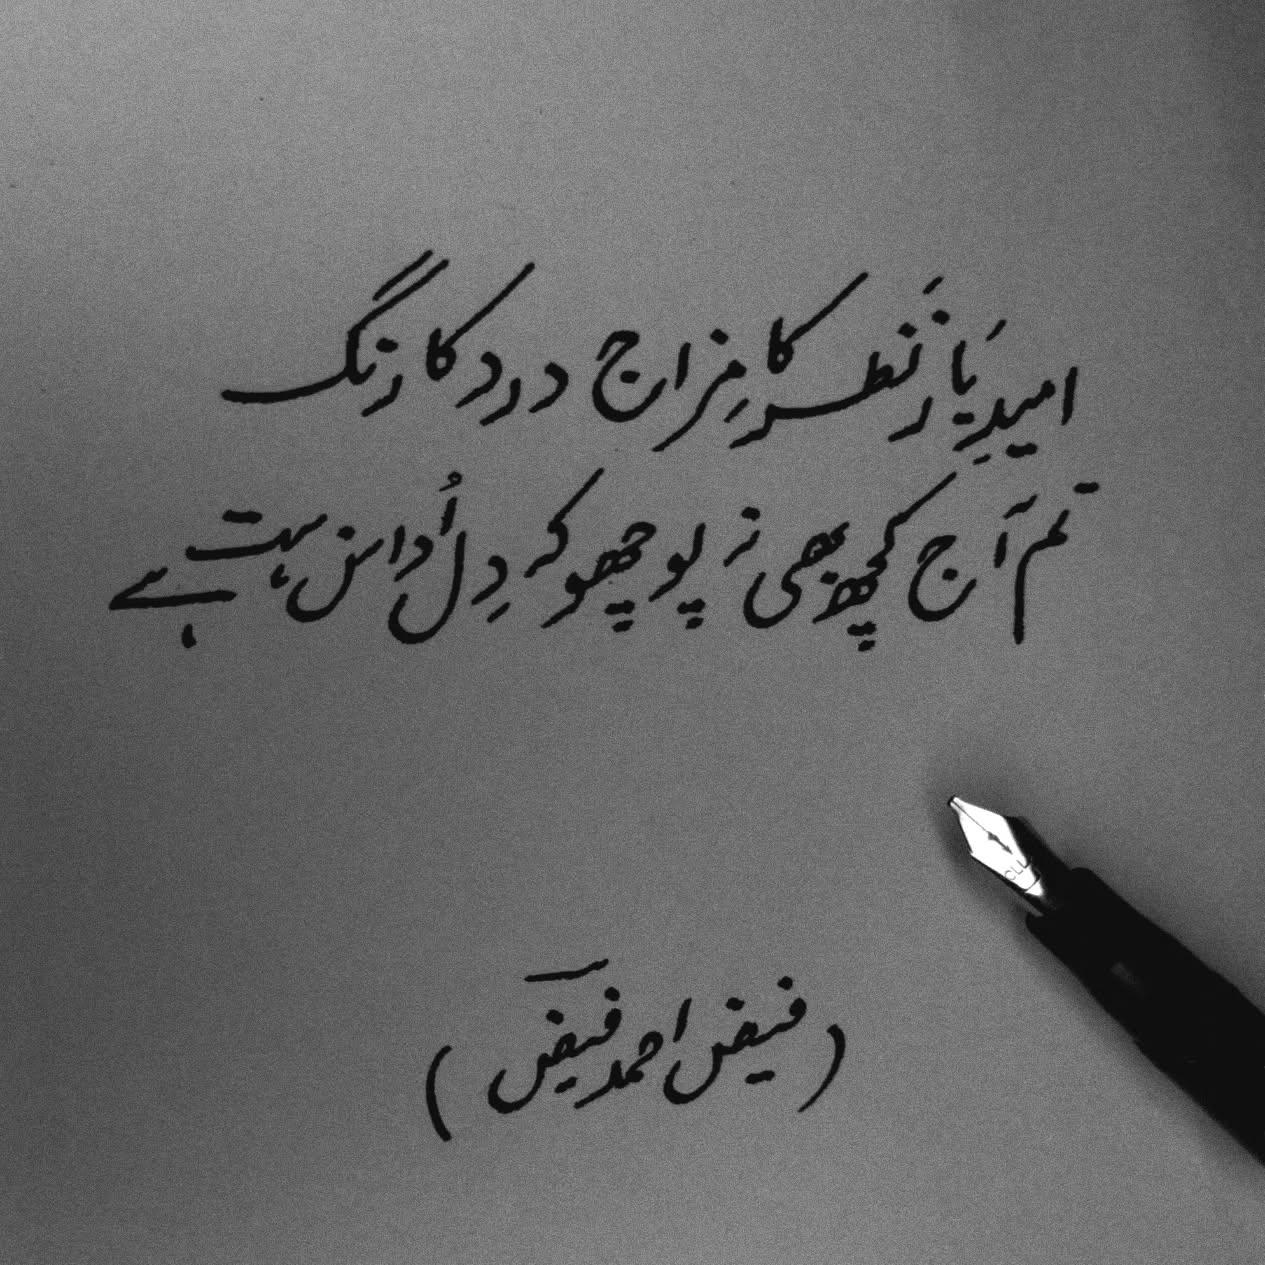 امیدِ یار نظر کا مزاج درد کا رنگ
تم آج کچھ بھی نہ پوچھو کہ دِل اُداس بہت ہے
(فیض احمد فیضؔ)